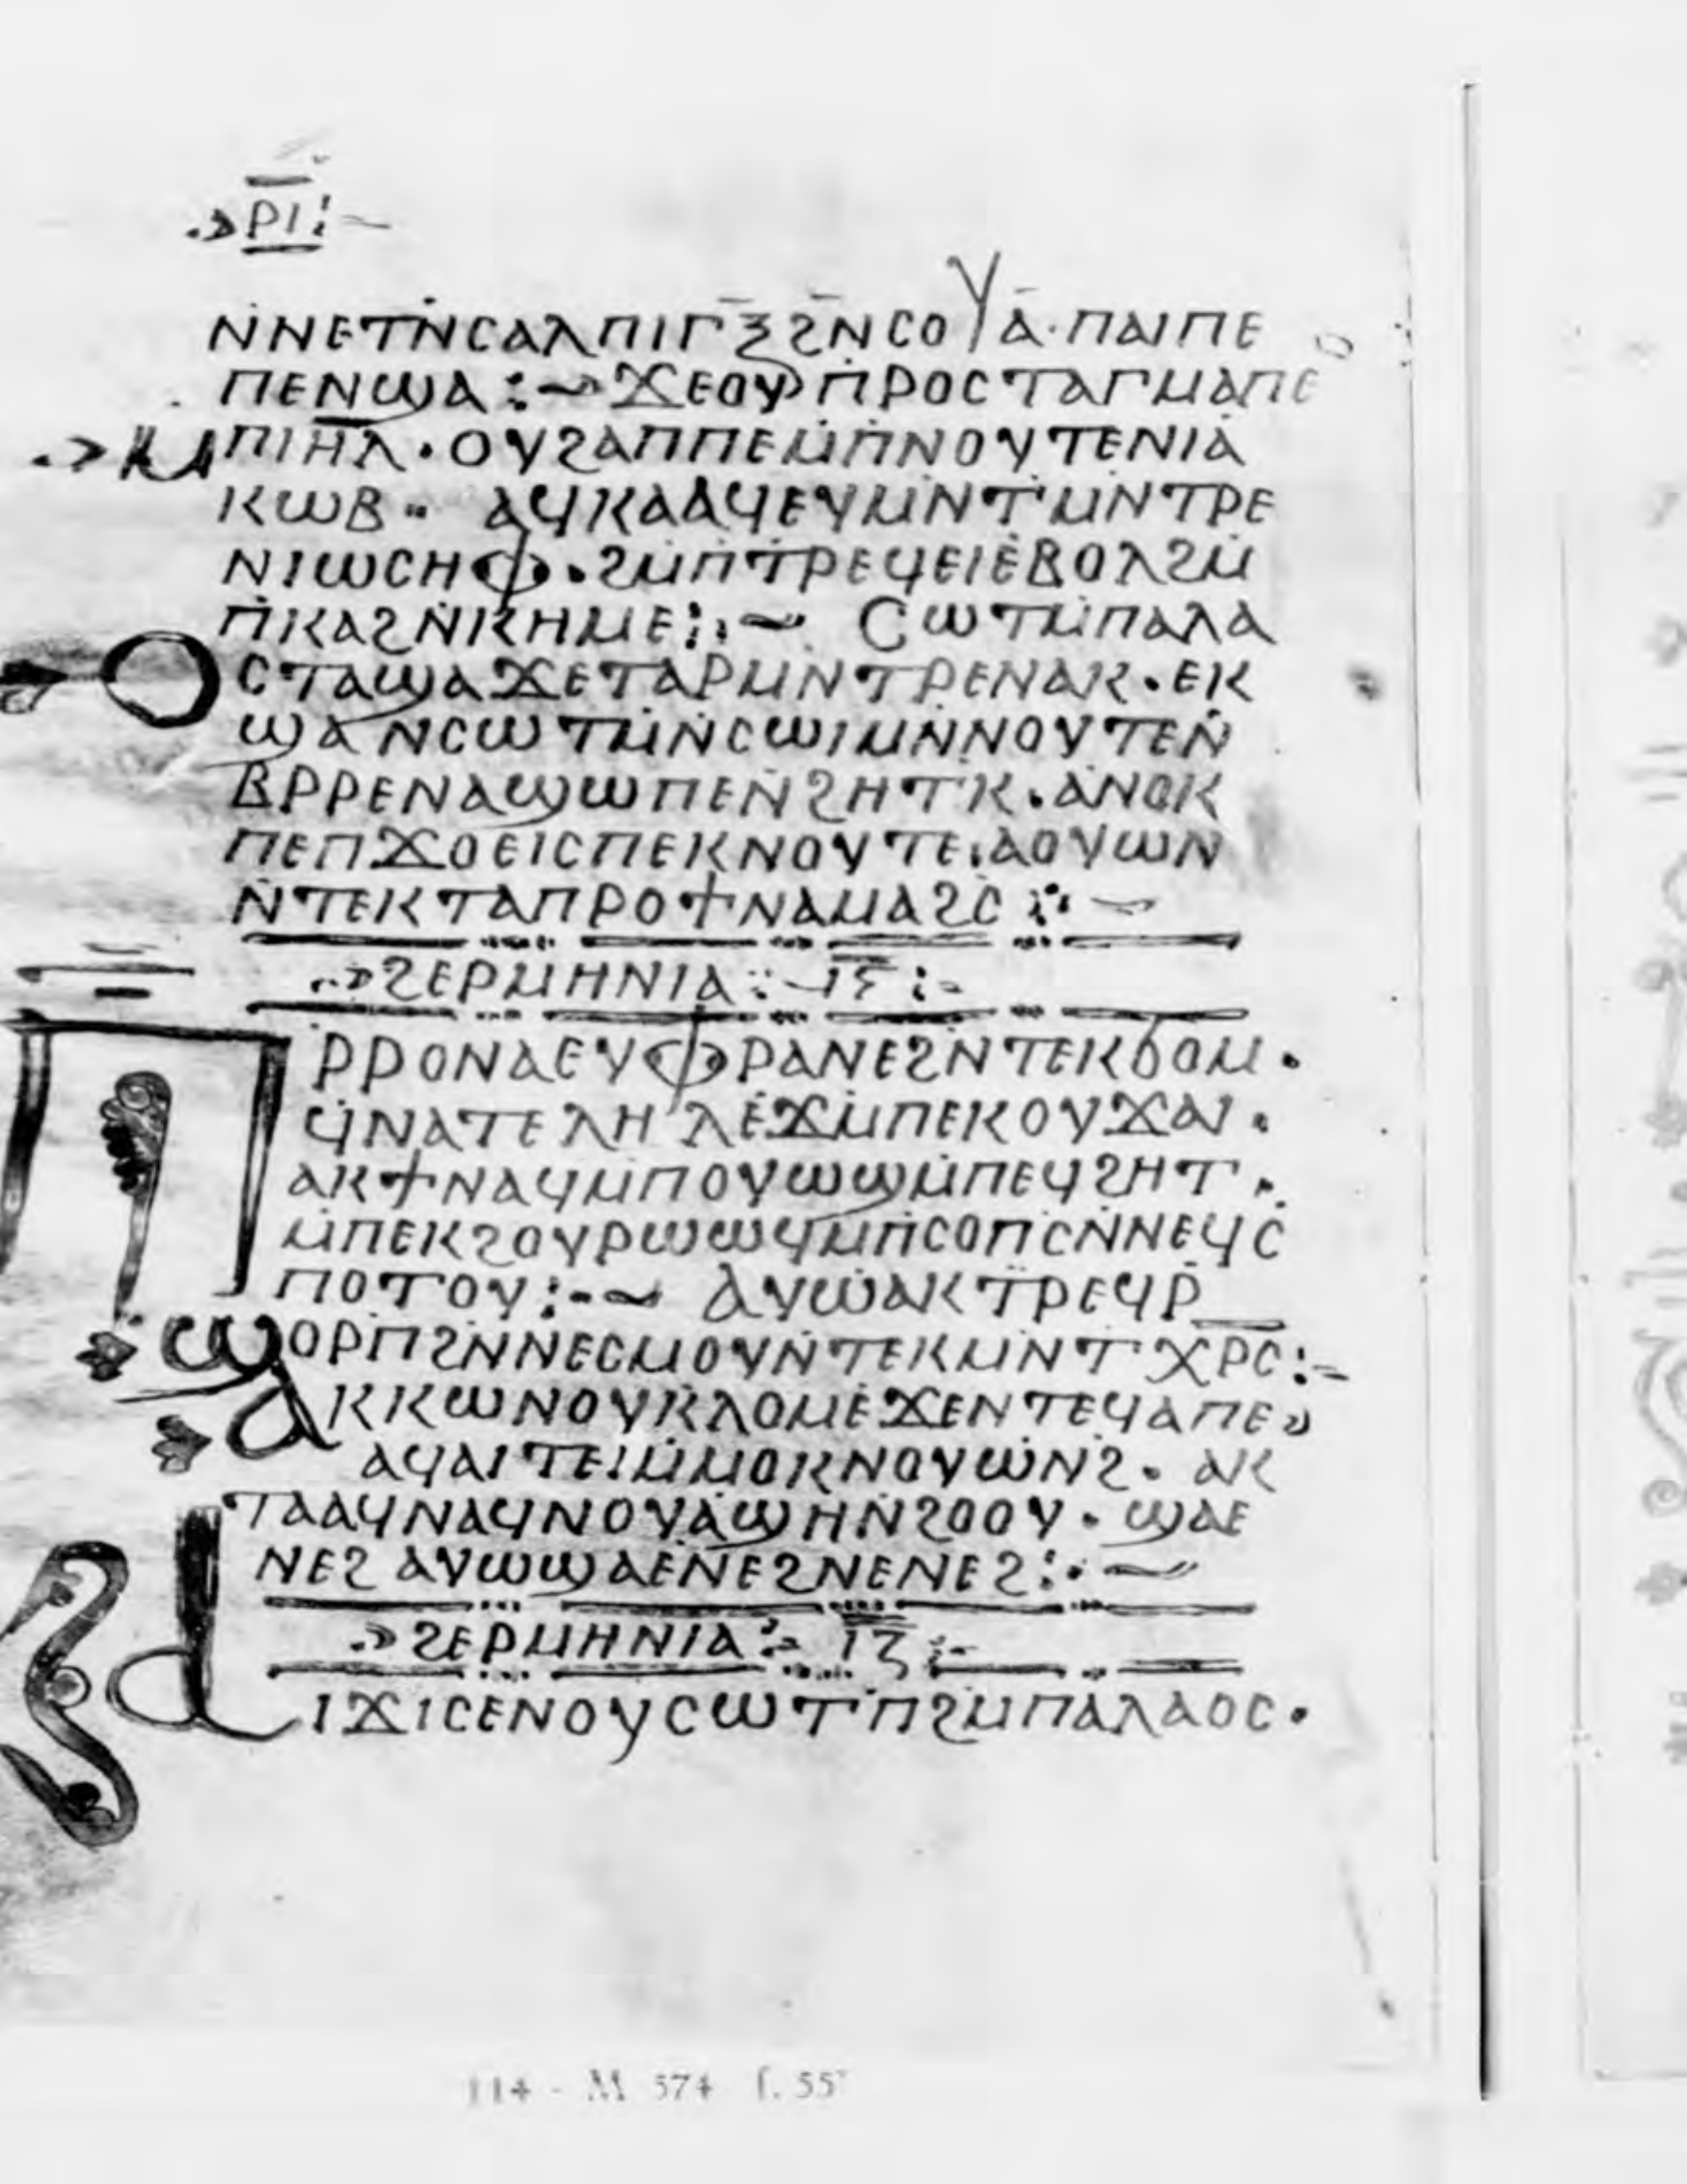 ⲣⲓ
ⲛ̇ⲛⲉⲧⲛ̇ⲥⲁⲗⲡⲓⲅⲝϩⲛ̅ⲥⲟⲩⲁ̅·ⲡⲁⲓⲡⲉ
ⲡⲉⲛϣⲁ:~ϫⲉⲟⲩⲡ̇ⲣⲟⲥⲧⲁⲅⲙⲁⲡⲉ
ⲙⲡⲓⲏ̅ⲗ·ⲟⲩϩⲁⲡⲡⲉⲙ̇ⲡ̇ⲛⲟⲩⲧⲉⲛⲓⲁ̇
ⲕⲱⲃ·· ⲁϥⲕⲁⲁϥⲉⲩⲙⲛ̇ⲧⲙⲛ̇ⲧⲣⲉ
ⲛⲓⲱⲥⲏⲫ·ϩⲙ̇ⲡ̇ⲧⲣⲉϥⲉⲓⲉ̇ⲃⲟⲗϩⲙ̇
ⲡ̇ⲕⲁϩⲛ̇ⲕⲏⲙⲉ:~ ⲥⲱⲧⲙ̇ⲡⲁⲗⲁ
ⲟⲥⲧⲁϣⲁϫⲉⲧⲁⲣⲙⲛ̇ⲧⲣⲉⲛⲁⲕ·ⲉⲕ
ϣⲁⲛⲥⲱⲧⲙ̇ⲛ̇ⲥⲱⲓⲙⲛ̇ⲛⲟⲩⲧⲉⲛ̇
ⲃⲣⲣⲉⲛⲁϣⲱⲡⲉⲛ̇ϩⲏⲧⲕ·ⲁ̇ⲛⲟⲕ
ⲡⲉⲡϫⲟⲉⲓⲥⲡⲉⲕⲛⲟⲩⲧⲉ·ⲁⲟⲩⲱⲛ
ⲛ̇ⲧⲉⲕⲧⲁⲡⲣⲟϯⲛⲁⲙⲁϩⲥ:~
ϩⲉⲣⲙⲏⲛⲓⲁ:~ⲓ̅ⲋ̅:~
ⲡⲣⲣⲟⲛⲁⲉⲩⲫⲣⲁⲛⲉϩⲛ̇ⲧⲉⲕϭⲟⲙ·
ϥⲛⲁⲧⲉⲗⲏⲗⲉ̇ϫⲙ̇ⲡⲉⲕⲟⲩϫⲁⲓ·
ⲁⲕϯⲛⲁϥⲙ̇ⲡⲟⲩⲱϣⲙ̇ⲡⲉϥϩⲏⲧ·
ⲙ̇ⲡⲉⲕϩⲟⲩⲣⲱⲱϥⲙ̇ⲡ̇ⲥⲟⲡⲥⲛ̇ⲛⲉϥⲥ
ⲡⲟⲧⲟⲩ:~ ⲁⲩⲱⲁⲕⲧⲣⲉϥⲣ̇
ϣⲟⲣⲡϩⲛ̇ⲛⲉⲥⲙⲟⲩⲛ̇ⲧⲉⲕⲙⲛ̇ⲧⲭⲣ̅ⲥ:~
ⲁⲕⲕⲱⲛⲟⲩⲕ̇ⲗⲟⲙⲉ̇ϫⲉⲛⲧⲉϥⲁⲡⲉ
ⲁϥⲁⲓⲧⲉⲓⲙ̇ⲙⲟⲕⲛⲟⲩⲱⲛϩ· ⲁⲕ
ⲧⲁⲁϥⲛⲁϥⲛⲟⲩⲁ̇ϣⲏⲛ̇ϩⲟⲟⲩ·ϣⲁⲉ
ⲛⲉϩⲁⲩⲱϣⲁⲉ̇ⲛⲉϩⲛⲉⲛⲉϩ:~
ϩⲉⲣⲙⲏⲛⲓⲁ:~ⲓ̅ⲍ̅:~
ⲁⲓϫⲓⲥⲉⲛⲟⲩⲥⲱⲧⲡϩⲙ̇ⲡⲁⲗⲁⲟⲥ·
114 - M 574 f. 55ᵛ